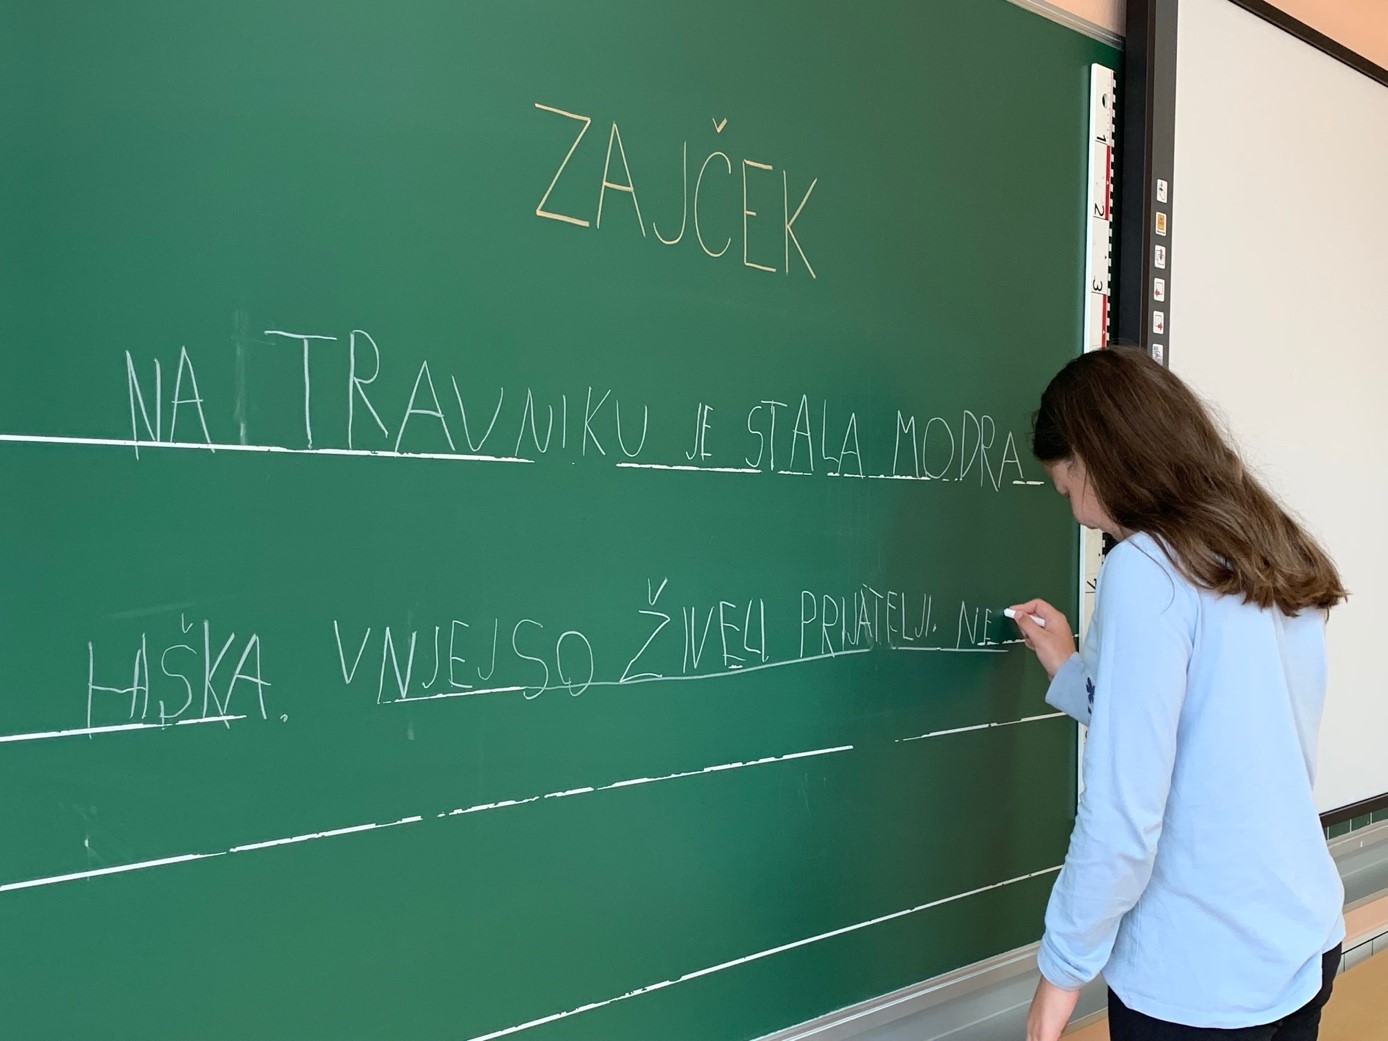 ZAJČEK
NA TRAVNIKU JE STALA MODRA
HIŠKA. V NJEJ SO ŽIVELI PRIJATELJI. NE
1
2
3